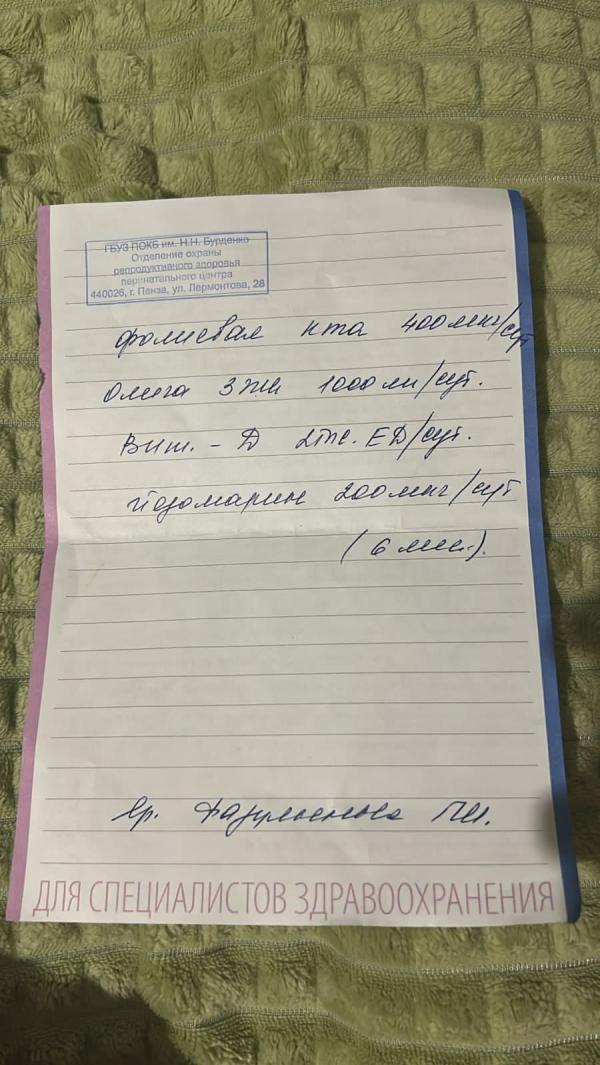 ГБУЗ ПОКБ им. Н.Н. Бурденко
Отделение охраны
репродуктивного здоровья
перинатального центра
440026, г. Пенза, ул. Лермонтова, 28
фолиевая к-та 400 мкг/сут
Омега 3 1000 /сут.
Вит. - Д 2тыс. ЕД/сут.
Йодомарин 200 мкг/сут
(6 мес.).
Вр.
ДЛЯ СПЕЦИАЛИСТОВ ЗДРАВООХРАНЕНИЯ